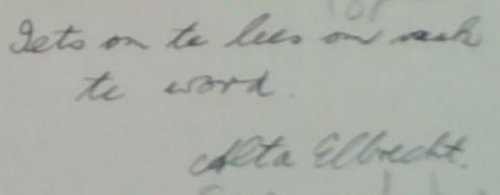 Iets om te lees om ryk
te word.
Alta Elbrecht.